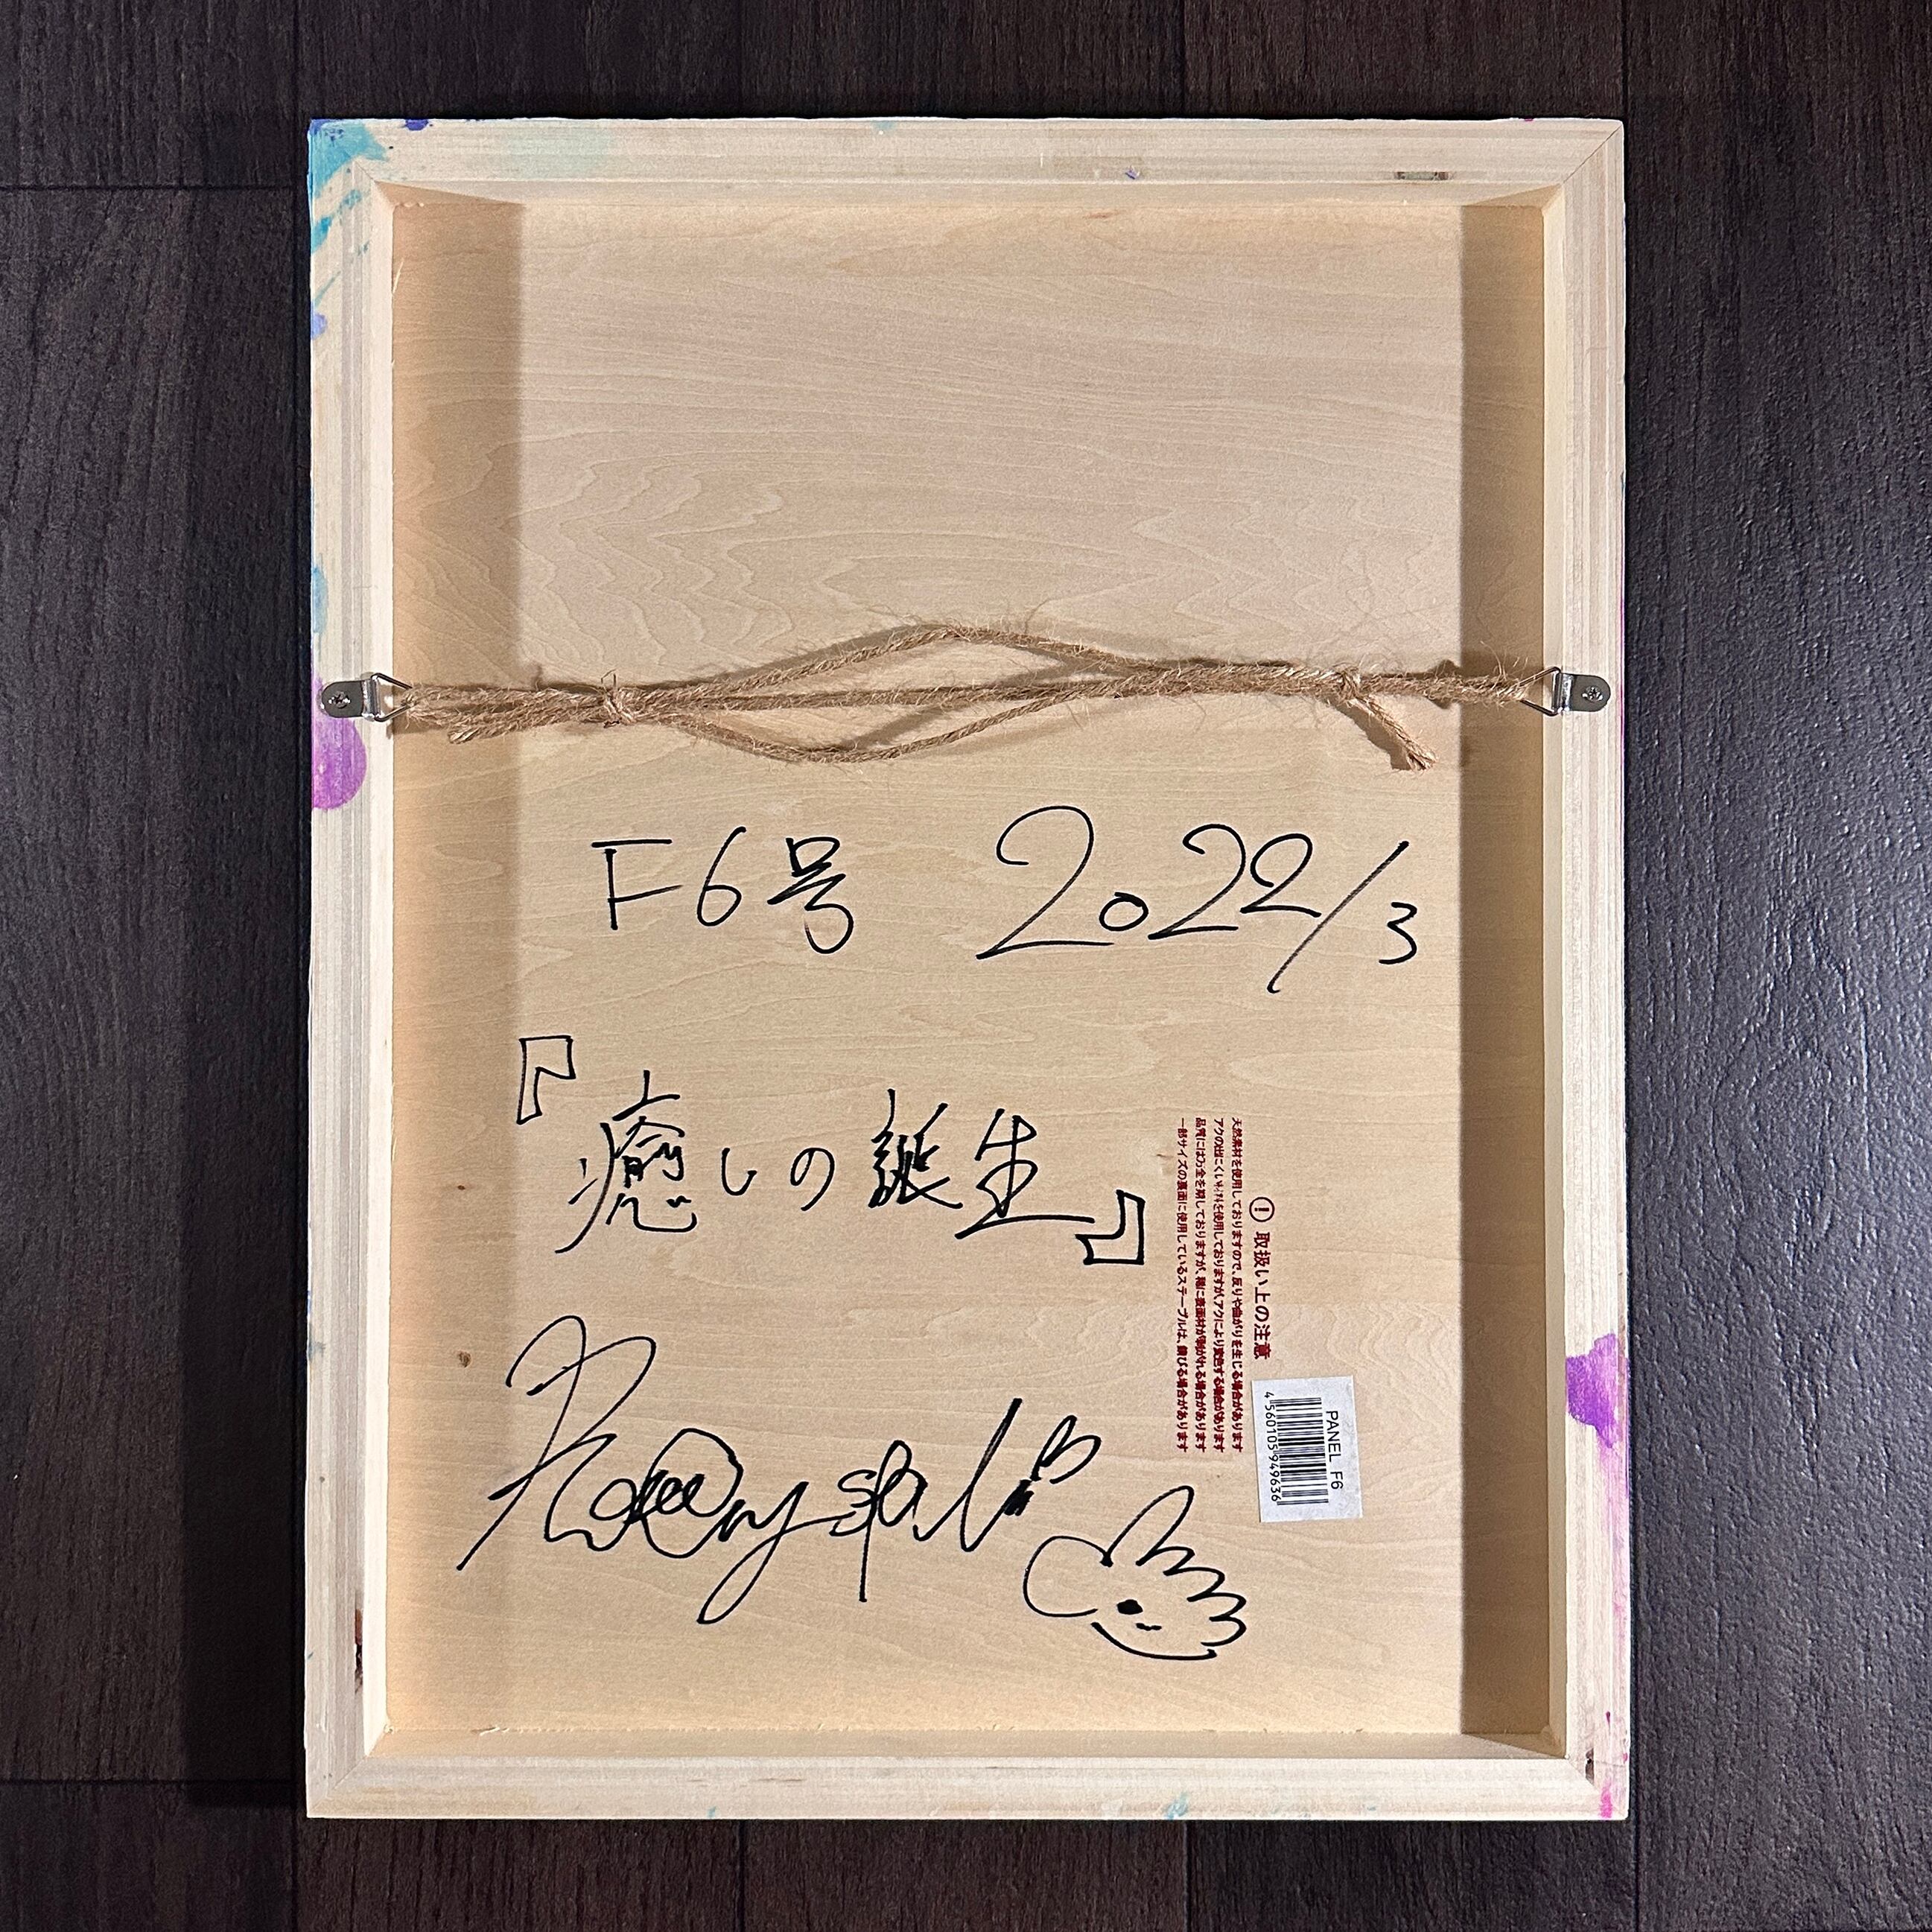 F6号 2022/3
『癒しの誕生』
! 取扱い上の注意
天然素材を使用しておりますので、反りや曲がりを生じる場合があります
アクの出にくい材料を使用しておりますが、アクにより変色する場合があります
品質には万全を期しておりますが、稀に表面材が剥がれる場合があります
一部サイズの裏面に使用しているステープルは、錆びる場合があります
PANEL F6
4560105949636